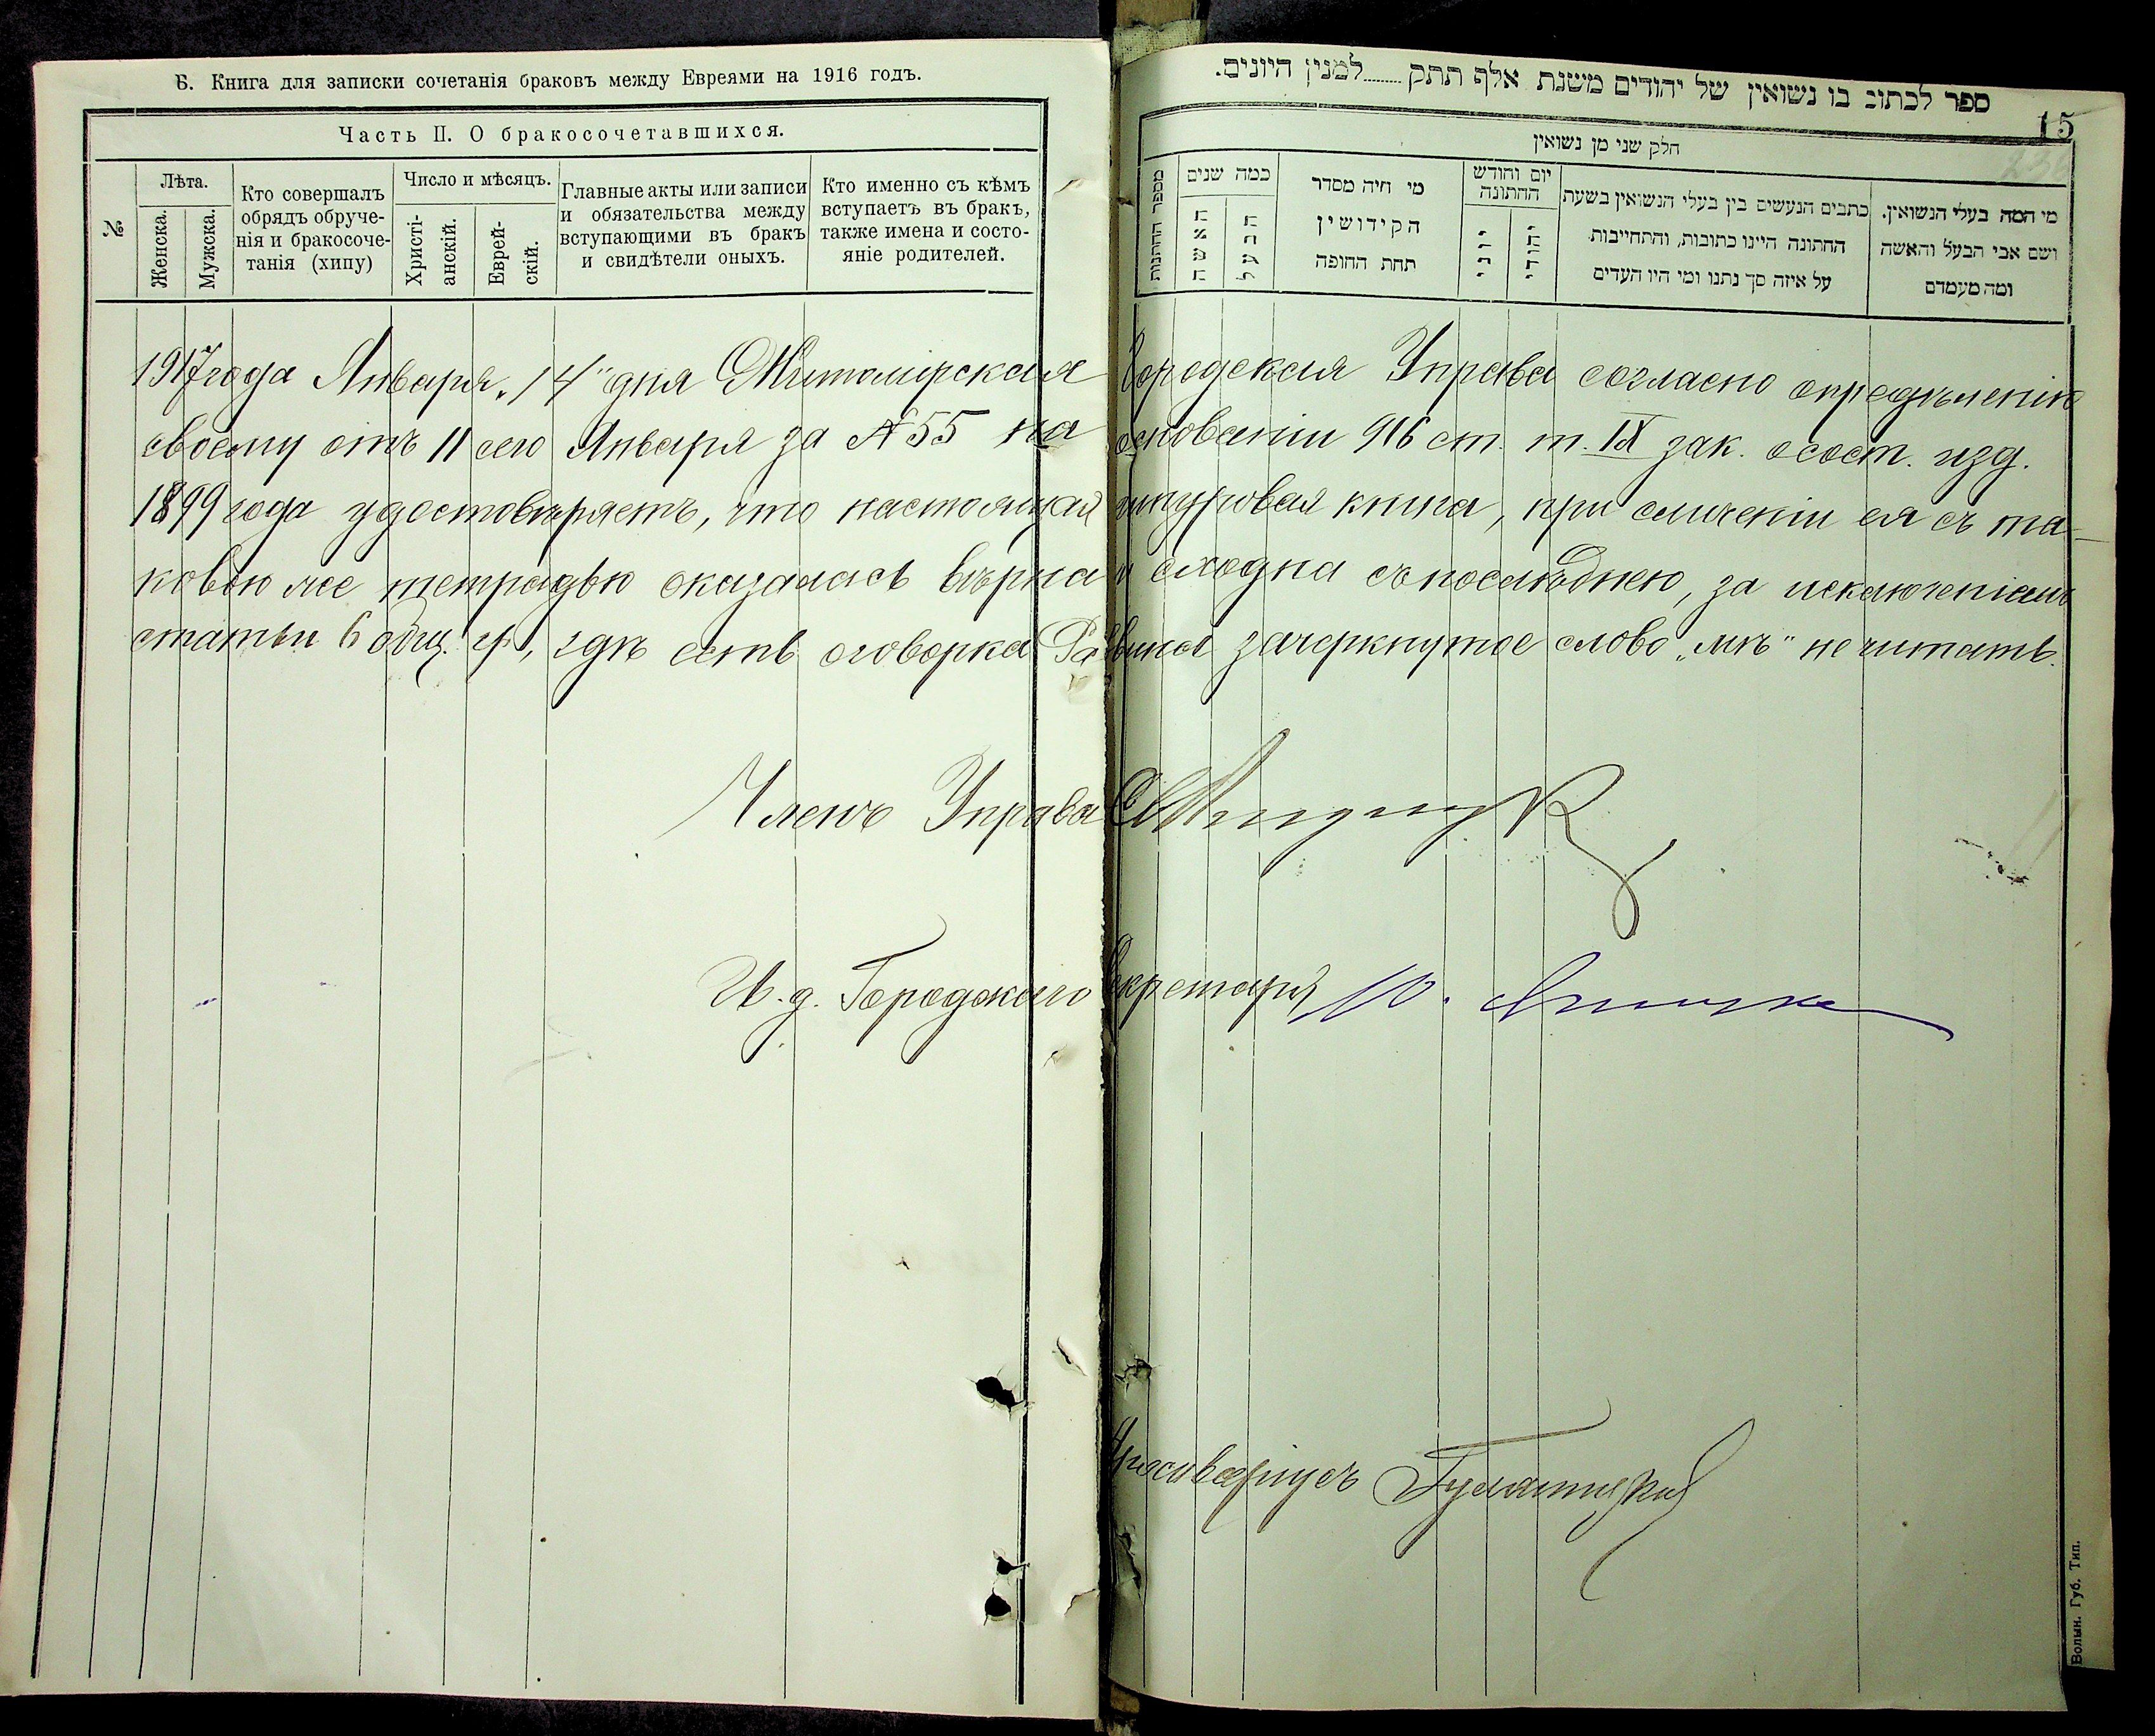 Б. Книга для записки сочетанія браковъ между Евреями на 1916 годъ.
Часть II. О бракосочетавшихся.
№
Лѣта.
Женска.
Мужска.
Кто совершалъ
обрядъ обруче-
нія и бракосоче-
танія (хипу)
Число и мѣсяцъ.
Христі-
анскій.
Еврей-
скій.
Главные акты или записи
и обязательства между
вступающими въ бракъ
и свидѣтели оныхъ.
Кто именно съ кѣмъ
вступаетъ въ бракъ,
также имена и состо-
яніе родителей.
ספר לכתוב בו נשואין של יהודים משנת אלף תתק........למנין היונים.
15
236
חלק שני מן נשואין
מספר החתונות
כמה שנים
האשה
הבעל
מי היה מסדר
הקידושין
תחת החופה
יום וחודש
החתונה
יוני
יהודי
כתבים הנעשים בין בעלי הנשואין בשעת
החתונה היינו כתובות, והתחייבות
על איזה סך נתנו ומי היו העדים
מי המה בעלי הנשואין.
ושם אבי הבעל והאשה
ומה מעמדם
1917 года Января „14" дня Житомірская Городская Управа согласно опредѣленію
своему отъ 11 сего Января за № 55 на основаніи 916 ст. т. IX зак. о сост. изд.
1899 года удостовѣряетъ, что настоящая шнуровая книга, при сличеніи ея съ та-
ковою же тетрадью оказалась вѣрна и сходна съ послѣднею, за исключеніемъ
статьи 6 общ. гр., гдѣ есть оговорка Раввина зачеркнутое слово „мѣ" не читать.
Членъ Управы
И. д. Городского Секретаря Ю.
Волын. Губ. Тип.